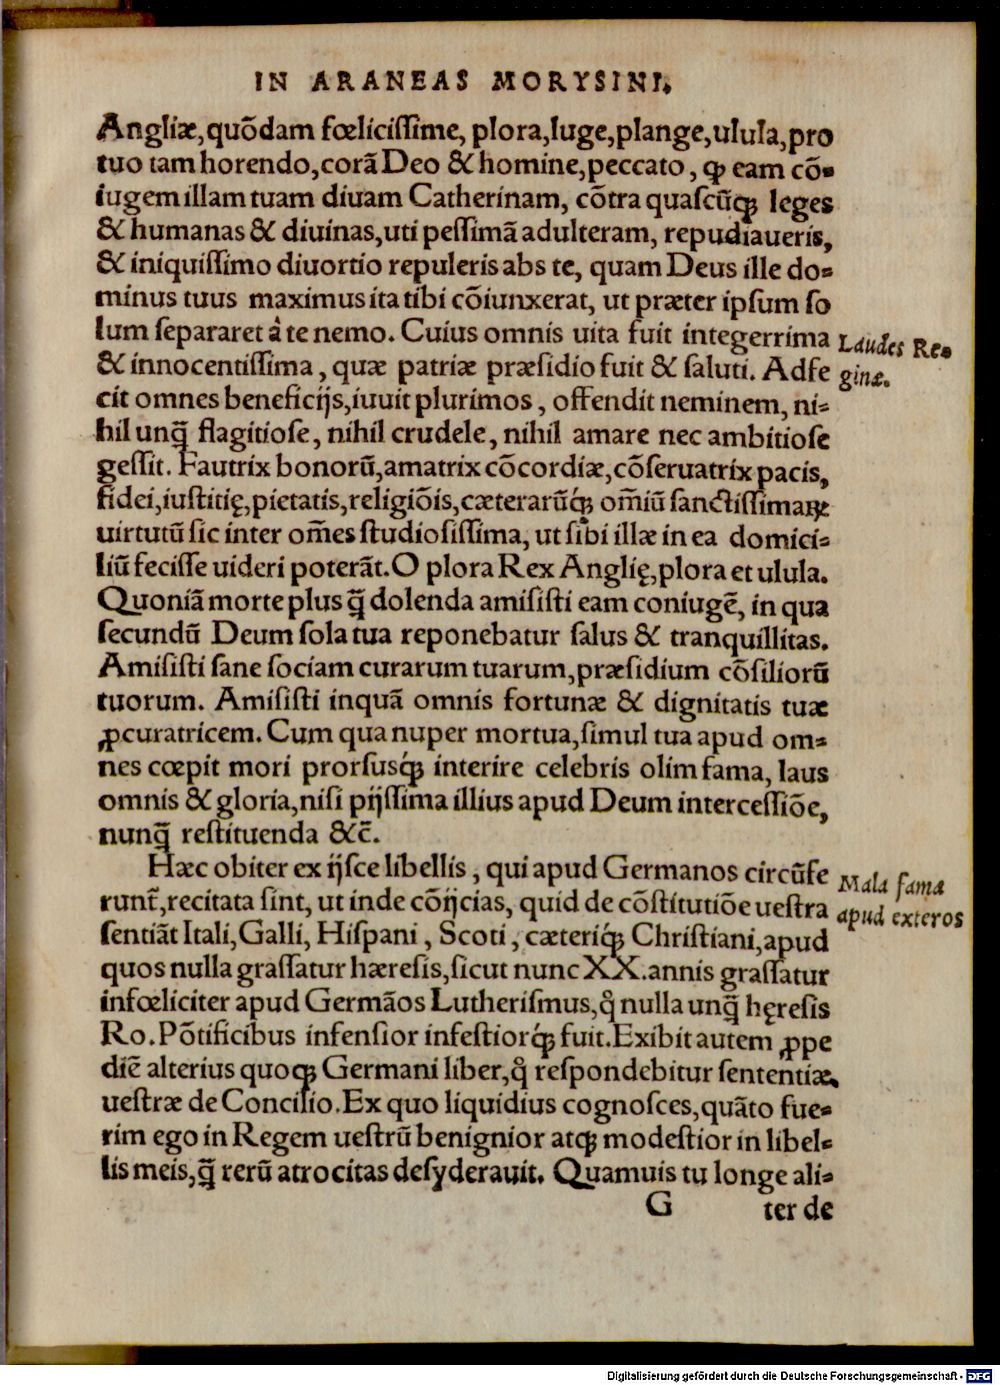 IN ARANEAS MORYSINI.
Angliæ,quōdam fœlicissime, plora,luge,plange,ulula,pro
tuo tam horendo,corā Deo & homine,peccato, ꝙ eam cō-
iugem illam tuam diuam Catherinam, cōtra quascūꝙ leges
& humanas & diuinas,uti pessimā adulteram, repudiaueris,
& iniquissimo diuortio repuleris abs te, quam Deus ille do-
minus tuus maximus ita tibi cōiunxerat, ut præter ipsum so
lum separaret à te nemo. Cuius omnis uita fuit integerrima
Laudes Re-
& innocentissima, quæ patriæ præsidio fuit & saluti. Adfe
ginæ.
cit omnes beneficijs,iuuit plurimos, offendit neminem, ni-
hil unq̄ flagitiose, nihil crudele, nihil amare nec ambitiose
gessit. Fautrix bonorū,amatrix cōcordiæ,cōseruatrix pacis,
fidei,iustitię,pietatis,religiōis,cæterarūq́ꝫ om̄iū sanctissimaꝝ
uirtutū sic inter om̄es studiosissima, ut sibi illæ in ea domici-
liū fecisse uideri poterāt.O plora Rex Anglię,plora et ulula.
Quoniā morte plus q̄ dolenda amisisti eam coniugē, in qua
secundū Deum sola tua reponebatur salus & tranquillitas.
Amisisti sane sociam curarum tuarum,præsidium cōsiliorū
tuorum. Amisisti inquā omnis fortunæ & dignitatis tuæ
ꝓcuratricem. Cum qua nuper mortua,simul tua apud om-
nes cœpit mori prorsusq́ꝫ interire celebris olim fama, laus
omnis & gloria,nisi pijssima illius apud Deum intercessiōe,
nunq̄ restituenda &c̄.
Hæc obiter ex ijsce libellis, qui apud Germanos circūfe
Mala fama
runt̄,recitata sint, ut inde cōijcias, quid de cōstitutiōe uestra
apud exteros
sentiāt Itali,Galli, Hispani, Scoti, cæteriq́ꝫ Christiani,apud
quos nulla grassatur hæresis,sicut nunc XX.annis grassatur
infœliciter apud Germāos Lutherismus,q̊ nulla unq̄ hęresis
Ro.Pōtificibus infensior infestiorq́ꝫ fuit.Exibit autem ꝓpe
diē alterius quoꝙ Germani liber,q̊ respondebitur sententiæ
uestræ de Concilio.Ex quo liquidius cognosces,quāto fue-
rim ego in Regem uestrū benignior atꝙ modestior in libel-
lis meis,q̄ rerū atrocitas desyderauit. Quamuis tu longe ali-
G ter de
Digitalisierung gefördert durch die Deutsche Forschungsgemeinschaft - DFG